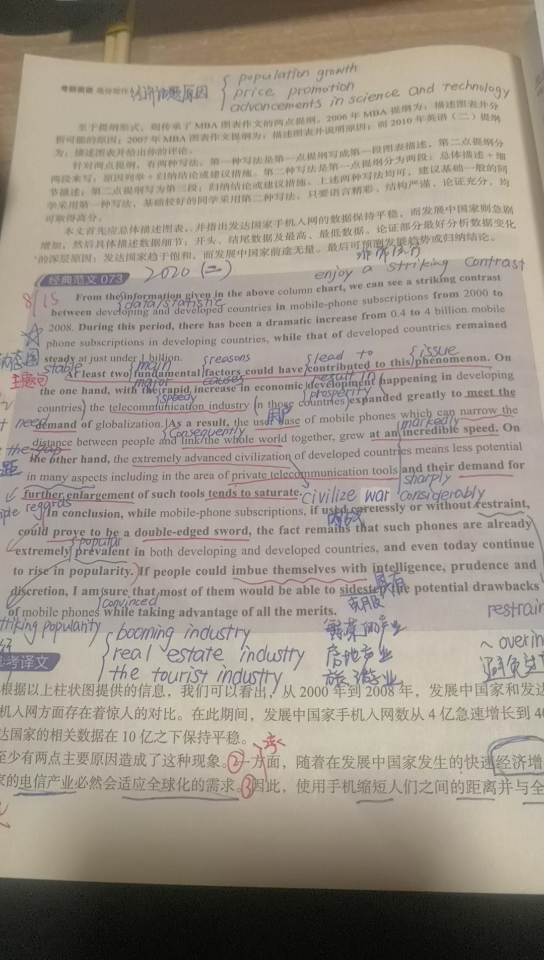 考研英语 高分写作 经济话题原因
population growth
price promotion
advancements in science and technology
至于提纲形式，则传承了 MBA 图表作文的两点提纲。2006 年 MBA 提纲为：描述图表并分
析可能的原因；2007 年 MBA 图表作文提纲为：描述图表并说明原因；而 2010 年英语（二）提纲
为：描述图表并给出你的评论。
针对两点提纲，有两种写法。第一种写法是第一点提纲写成第一段图表描述，第二点提纲分
两段来写：原因列举 + 归纳结论或建议措施。第二种写法是第一点提纲分为两段：总体描述 + 细
节描述；第二点提纲写为第三段：归纳结论或建议措施。上述两种写法均可，建议基础一般的同
学采用第一种写法，基础较好的同学采用第二种写法。只要语言精彩、结构严谨、论证充分，均
可取得高分。
本文首先应总体描述图表，并指出发达国家手机入网的数据保持平稳，而发展中国家则急剧
增加，然后具体描述数据细节：开头、结尾数据及最高、最低数据。论证部分最好分析数据变化
的深层原因：发达国家趋于饱和，而发展中国家前途无量。最后可预测发展趋势或归纳结论。
经典范文 073
2020 (二)
enjoy a striking contrast
8/15
From the information given in the above column chart, we can see a striking contrast
data/statistic
between developing and developed countries in mobile-phone subscriptions from 2000 to
2008. During this period, there has been a dramatic increase from 0.4 to 4 billion mobile
phone subscriptions in developing countries, while that of developed countries remained
steady at just under 1 billion.
stable
main
major
reasons
causes
lead to
result in
issue
主题句
At least two fundamental factors could have contributed to this phenomenon. On
the one hand, with the rapid increase in economic development happening in developing
speedy
prosperity
countries, the telecommunication industry in those countries expanded greatly to meet the
demand of globalization. As a result, the user base of mobile phones which can narrow the
Consequently
markedly
distance between people and link the whole world together, grew at an incredible speed. On
the other hand, the extremely advanced civilization of developed countries means less potential
in many aspects including in the area of private telecommunication tools and their demand for
sharply
considerably
further enlargement of such tools tends to saturate.
civilize war
regards
In conclusion, while mobile-phone subscriptions, if used carelessly or without restraint,
could prove to be a double-edged sword, the fact remains that such phones are already
popular
extremely prevalent in both developing and developed countries, and even today continue
to rise in popularity. If people could imbue themselves with intelligence, prudence and
discretion, I am sure that most of them would be able to sidestep the potential drawbacks
convinced
克服
of mobile phones while taking advantage of all the merits.
restrain
popularity
booming industry
real estate industry 房地产业
the tourist industry 旅游业
考译文
根据以上柱状图提供的信息，我们可以看出，从 2000 年到 2008 年，发展中国家和发达
机入网方面存在着惊人的对比。在此期间，发展中国家手机入网数从 4 亿急速增长到 40
达国家的相关数据在 10 亿之下保持平稳。
至少有两点主要原因造成了这种现象。②一方面，随着在发展中国家发生的快速经济增
家的电信产业必然会适应全球化的需求。③因此，使用手机缩短人们之间的距离并与全